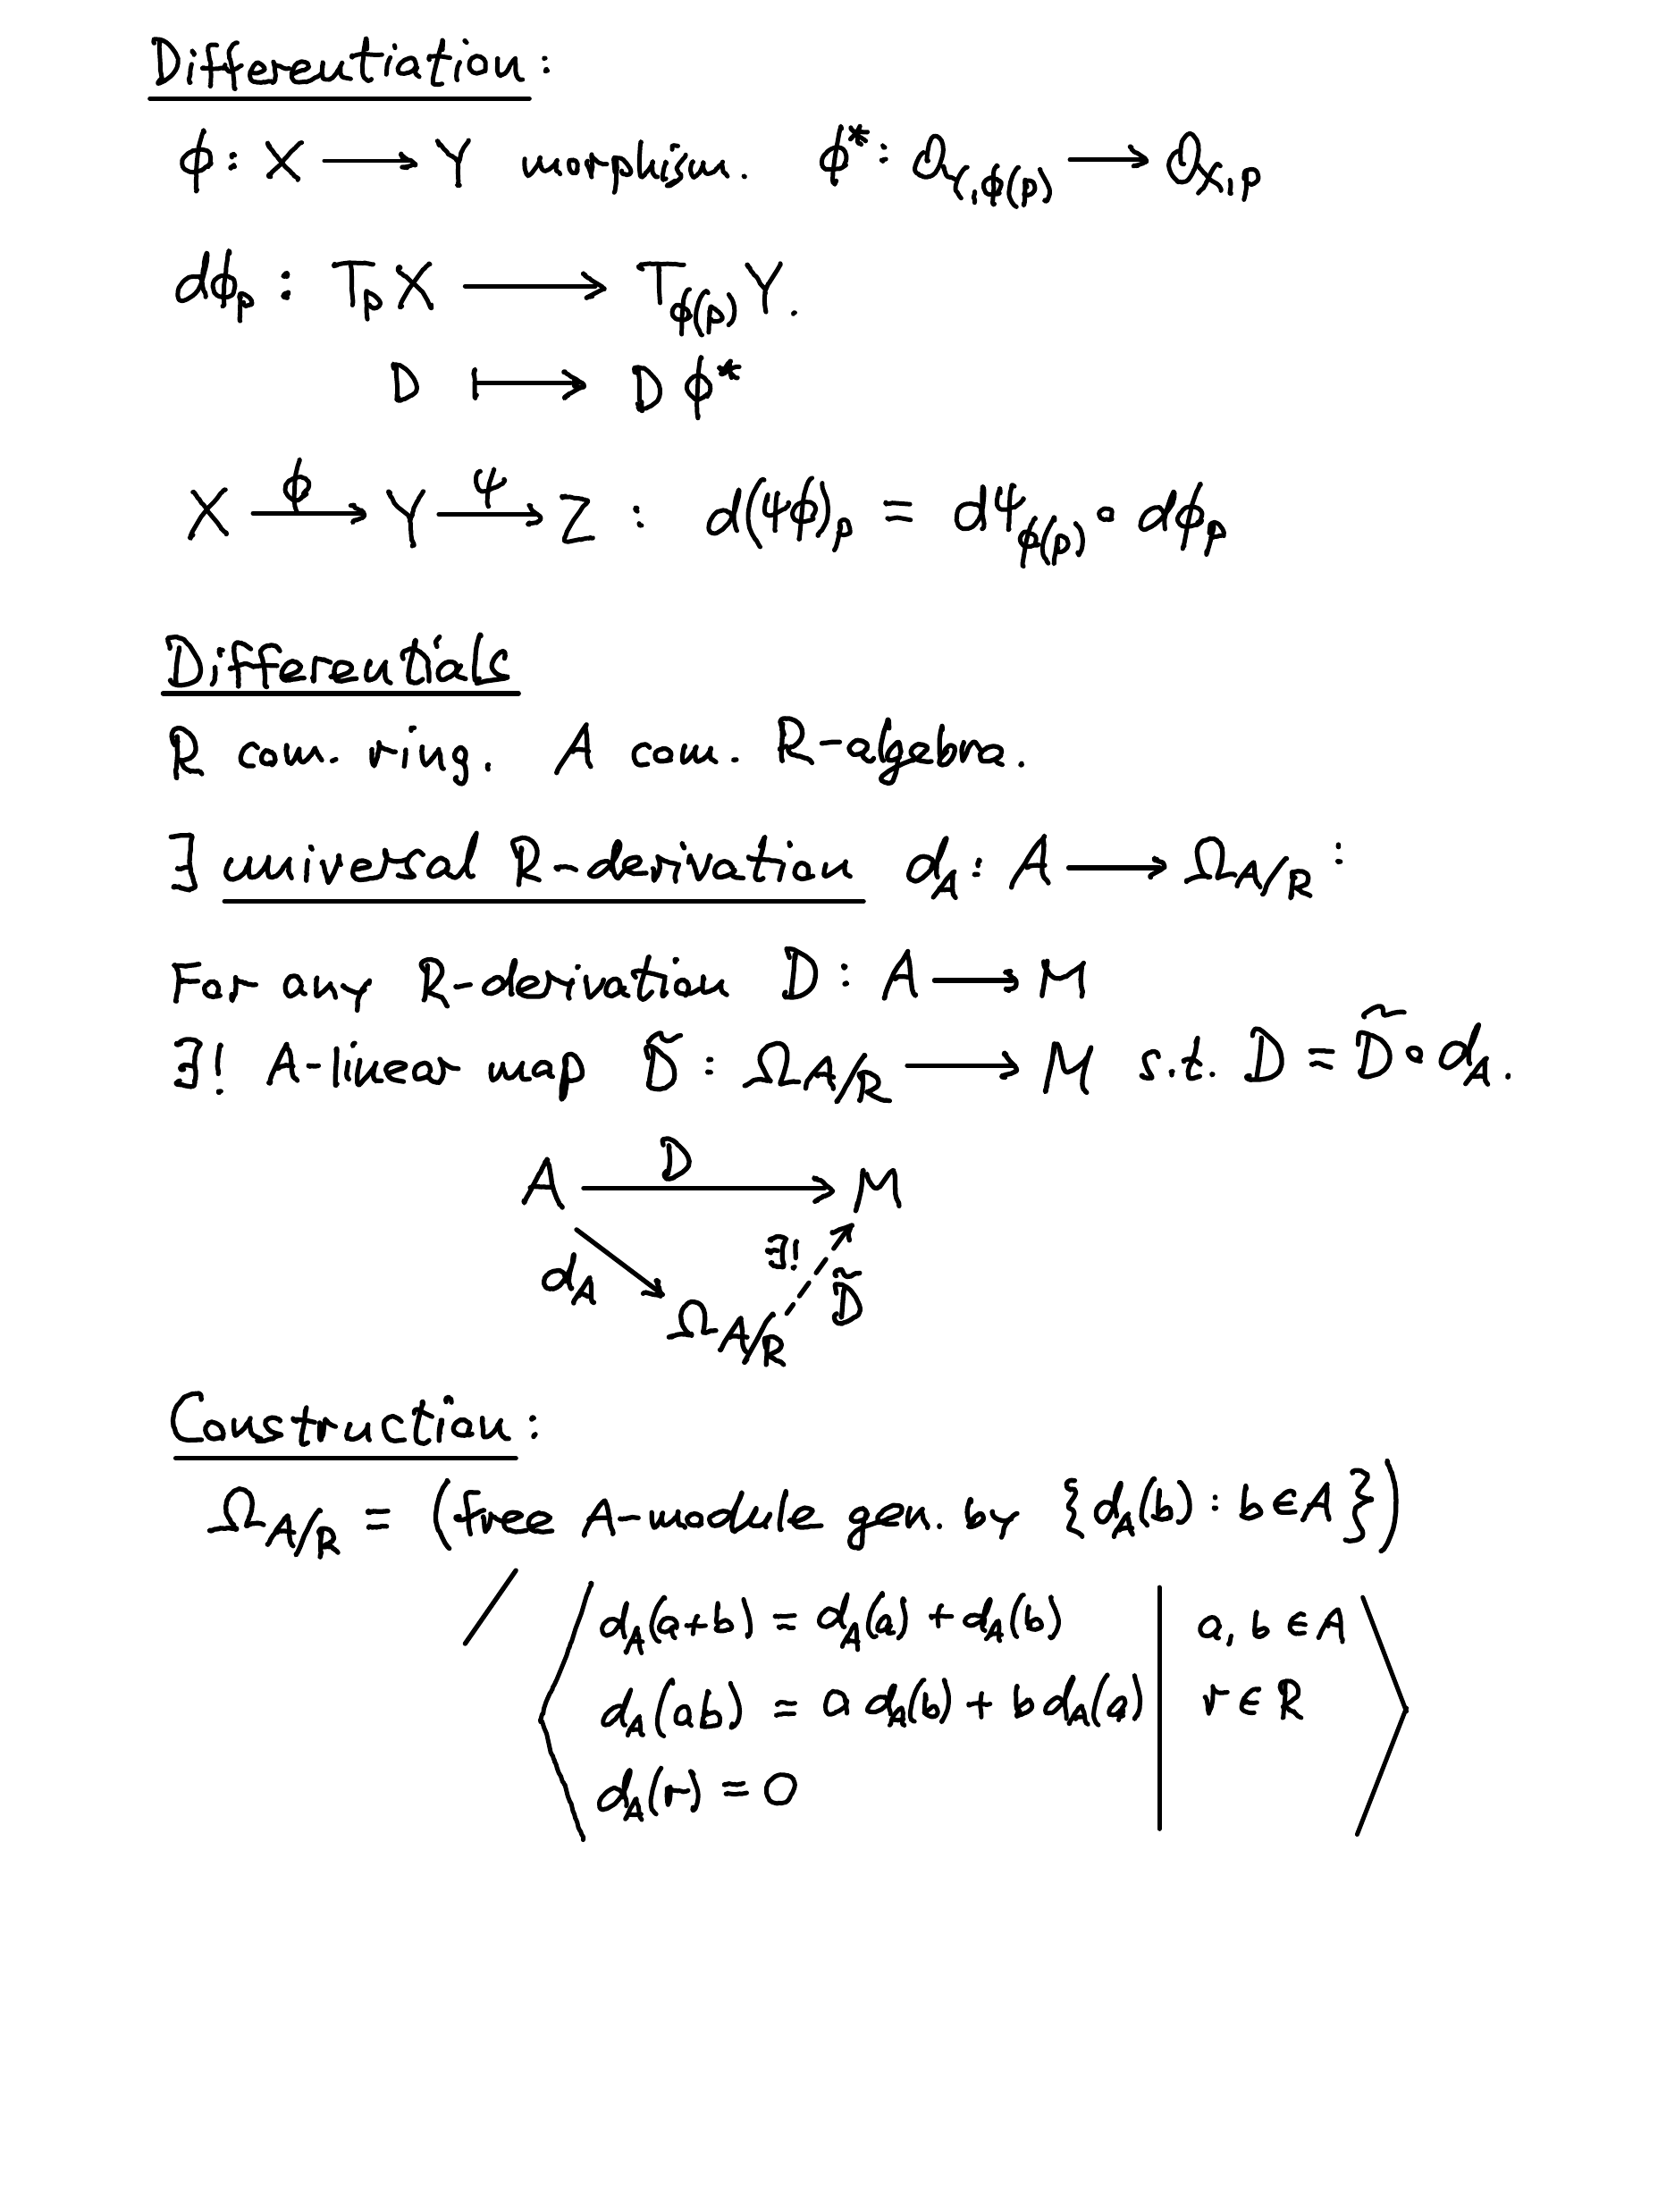 Differentiation:
ϕ: X ⟶ Y morphism. ϕ*: 𝒪_{Y,ϕ(p)} ⟶ 𝒪_{X,p}
dϕ_p : T_p X ⟶ T_{ϕ(p)} Y.
D ⟼ D ϕ*
X —ϕ→ Y —ψ→ Z : d(ψϕ)_p = dψ_{ϕ(p)} ∘ dϕ_p
Differentials
R com. ring. A com. R-algebra.
∃ universal R-derivation d_A: A ⟶ Ω_{A/R} :
For any R-derivation D: A ⟶ M
∃! A-linear map D̃ : Ω_{A/R} ⟶ M s.t. D = D̃ ∘ d_A.
D
A ⟶ M
d_A ∃! D̃
Ω_{A/R}
Construction:
Ω_{A/R} = (free A-module gen. by {d_A(b) : b ∈ A})
/ ⟨ d_A(a+b) = d_A(a) + d_A(b) | a, b ∈ A
d_A(ab) = a d_A(b) + b d_A(a) | r ∈ R ⟩
d_A(r) = 0